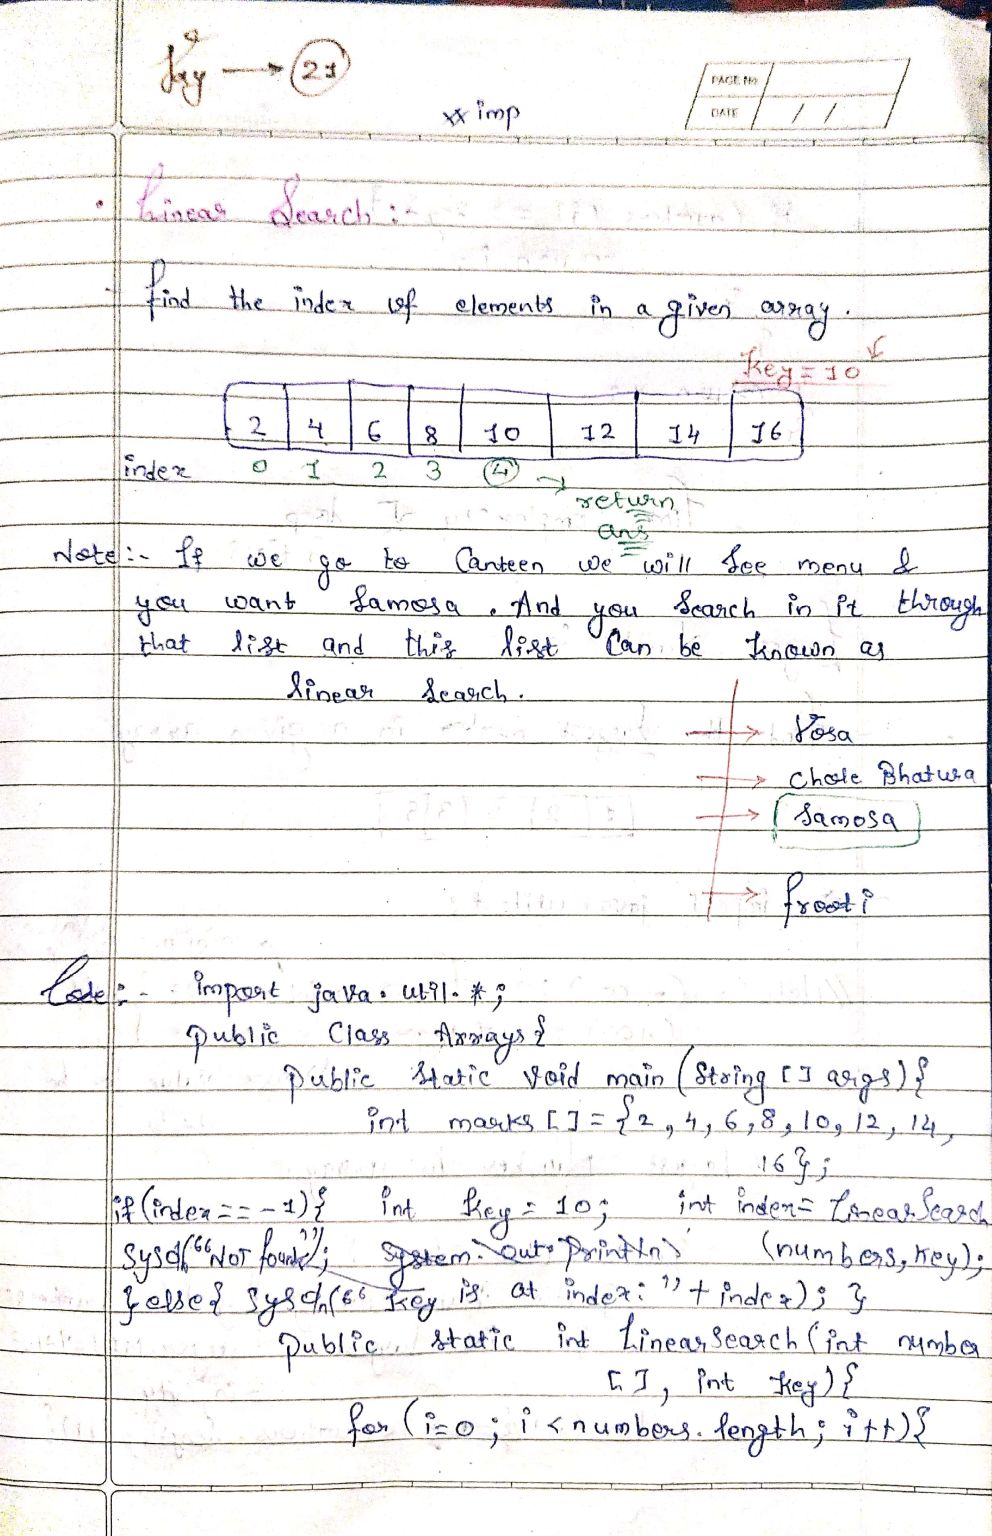 Key → 21
xx imp
PAGE No
DATE / /
• Linear Search :-
find the index of elements in a given array.
Key = 10
2 4 6 8 10 12 14 16
index 0 1 2 3 4 → return
ans
Note :- If we go to Canteen we will see menu &
you want Samosa . And you Search in it through
that list and this list Can be known as
linear Search.
→ Dosa
→ Chole Bhatura
→ Samosa
→ frooti
Code :- import java. util. * ;
public Class Arrays {
public static void main (String [] args) {
int marks [] = {2, 4, 6, 8, 10, 12, 14,
16 } ;
if (index == -1) { int Key = 10; int index = LinearSearch
Sysout("NOT found"); System. out. Println (numbers, Key);
} else { Sysoln("Key is at index: " + index); }
public static int LinearSearch (int number
[], int Key) {
for (i=0 ; i < numbers. length ; i++) {